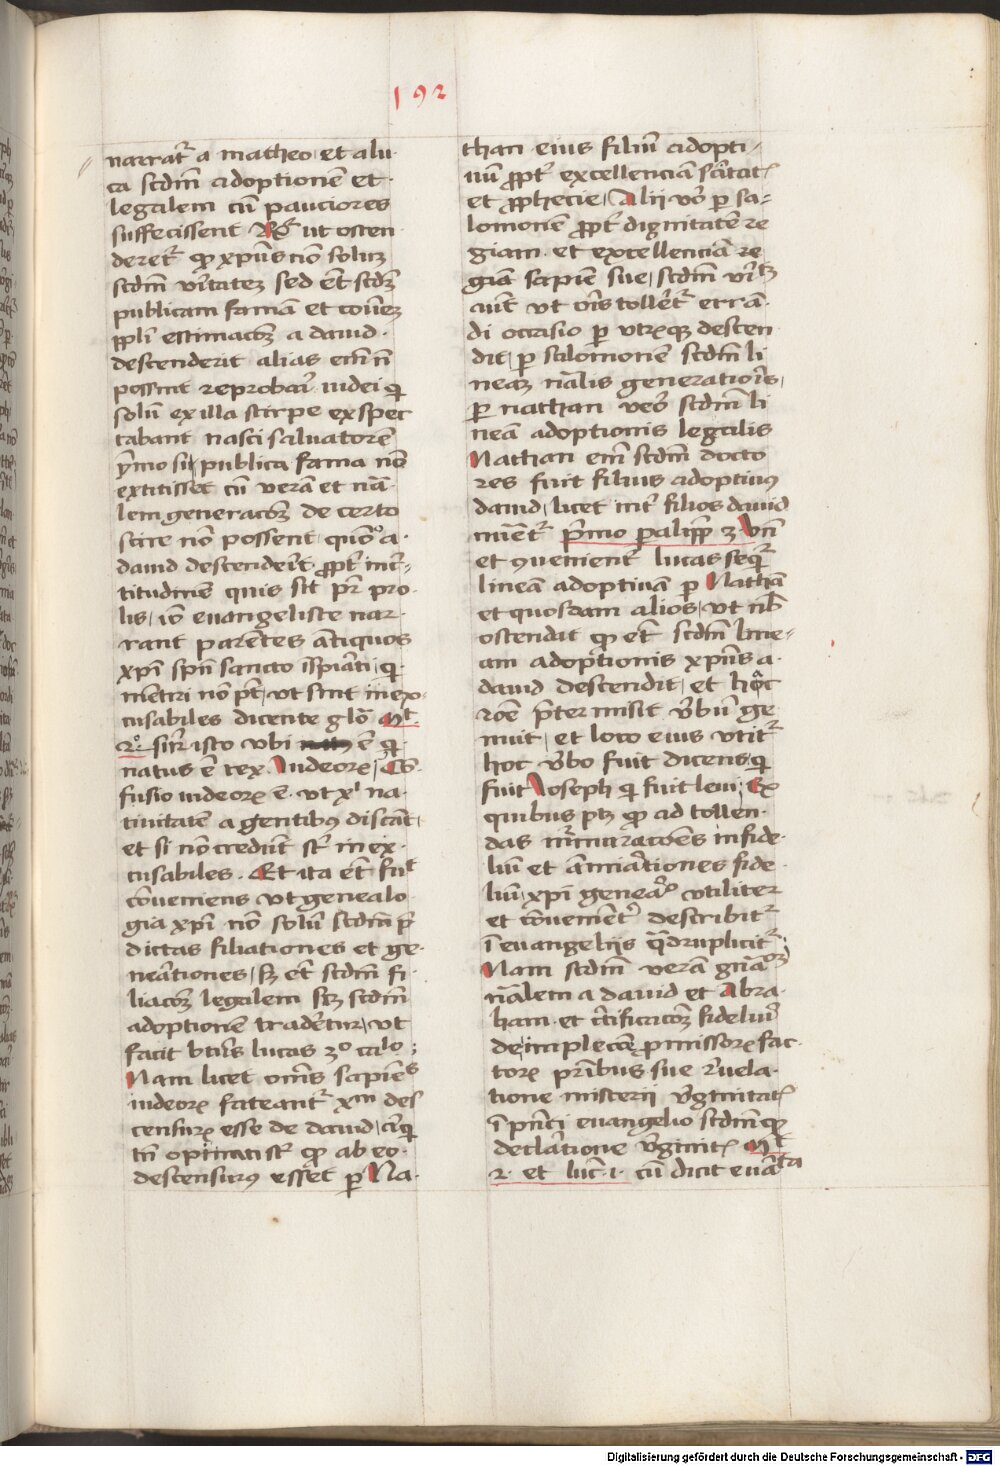 192
narrat᷑ a matheo et a lu
ca scdm̄ adoptionē et
legalem cū pauciores
suffecissent Rͬ ut osten
deret᷑ qͩ xpūs nō soluꝫ
scdm̄ v̄itateꝫ sed ēt scdꝫ
publicam famam et cōueꝫ
ppl̄i estimacōꝫ a dauid
descenderit alias em̄ n̄
possint reprobari iudei q̄
solū ex illa stirpe exspec
tabant nasci saluatorē
p̄mo si publica fama nō
extitisset cū verā et nāͣ
lem generacōꝫ de certo
scire nō possent quōͦ a
dauid descenderit ꝓpt̄ incͬ
titudinē quis sit pr̄ pro
lis iō euangeliste nar
rant parētes ātiquos
xpī spū sancto īspirāti q̄
mētiri nō pt̄ vt sint inex
cusabiles dicente glōͣ Mͭ
2ͦ suꝑ isto vbi ē q̄
natus ē rex Iudeoꝝ
fusio iudeoꝝ ē vt xͥ na
tiuitatē a gentibꝰ discāt
et si nō credūt st̄ inex
cusabiles . Et ita ēt fuͭ
cōueniens vt genealo
gia xpī nō solū scdm̄ p̄
dictas filiationes et ge
nerationes sꝫ ēt scdm̄ fi
liacōꝫ legalem sꝫ scdm̄
adoptionē traderetur vt
facit btūs lucas 3ͦ caͥͦlͦ
Nam licet om̄s sapiētͤs
iudeoꝝ fateant᷑ xm̄ des
censuꝝ esse de dauid
tn̄ opinati st̄ qͩ ab eo
descensurꝰ esset ꝑ Na
than eius filiū adopti
uū ꝓpt̄ excellenciā scītat᷑
et ꝓphecie Alij v̄o ꝑ sa
lomonē ꝓpt̄ dignitatē re
giam et excellenciā re
giā sapiē sue scdm̄ v̄itͣꝫ
aut̄ vt oīs tolleret᷑ errā
di occasio ꝑ vtrꝫqꝫ descen
dit ꝑ salomonē scdm̄ li
neaꝫ nāͣlis generationis
ꝑ nathan veō scdm̄ li
neā adoptionis legalis
Nathan em̄ scdm̄ docto
res fuit filius adoptiuꝰ
dauid licet int̄ filios dauid
nūet᷑ p̄mo paliꝑꝑ 3 Vn̄
et ꝯuenient᷑ lucas seq̄t᷑
lineā adoptiuā ꝑ Nathā
et quosdam alios vt nb̄
ostendat qͩ ēt scdm̄ line
am adoptionis xpūs a
dauid descendit et hāc
rōē p̄termisit v̄bū ge
nuit et loco eius vtit᷑
hoc v̄bo fuit dicens q̄
fuit Ioseph q̄ fuit leui Ex
quibus pꝫ qͩ ad tollen
das murmuracōes infide
liū et āmirationes fide
liū xpī genea utiliter
et cōuenient᷑ describit᷑
ī euangelijs qͣdrupliciter
Nam scdm̄ verā gnāͦꝫ
nāͣlem a dauid et Abra
ham et c̄tificacōꝫ fideliū
de implecōe ꝓmissoꝝ fac
toꝝ prībus sue reuela
tione misterii v̄ginitat᷑
ī pn̄ci euangelio scdm̄ qͩ
declaratione v̄ginit᷑ Mͭ
2 et luc̄ 1 cū dicit euāͭͣ
Digitalisierung gefördert durch die Deutsche Forschungsgemeinschaft - DFG